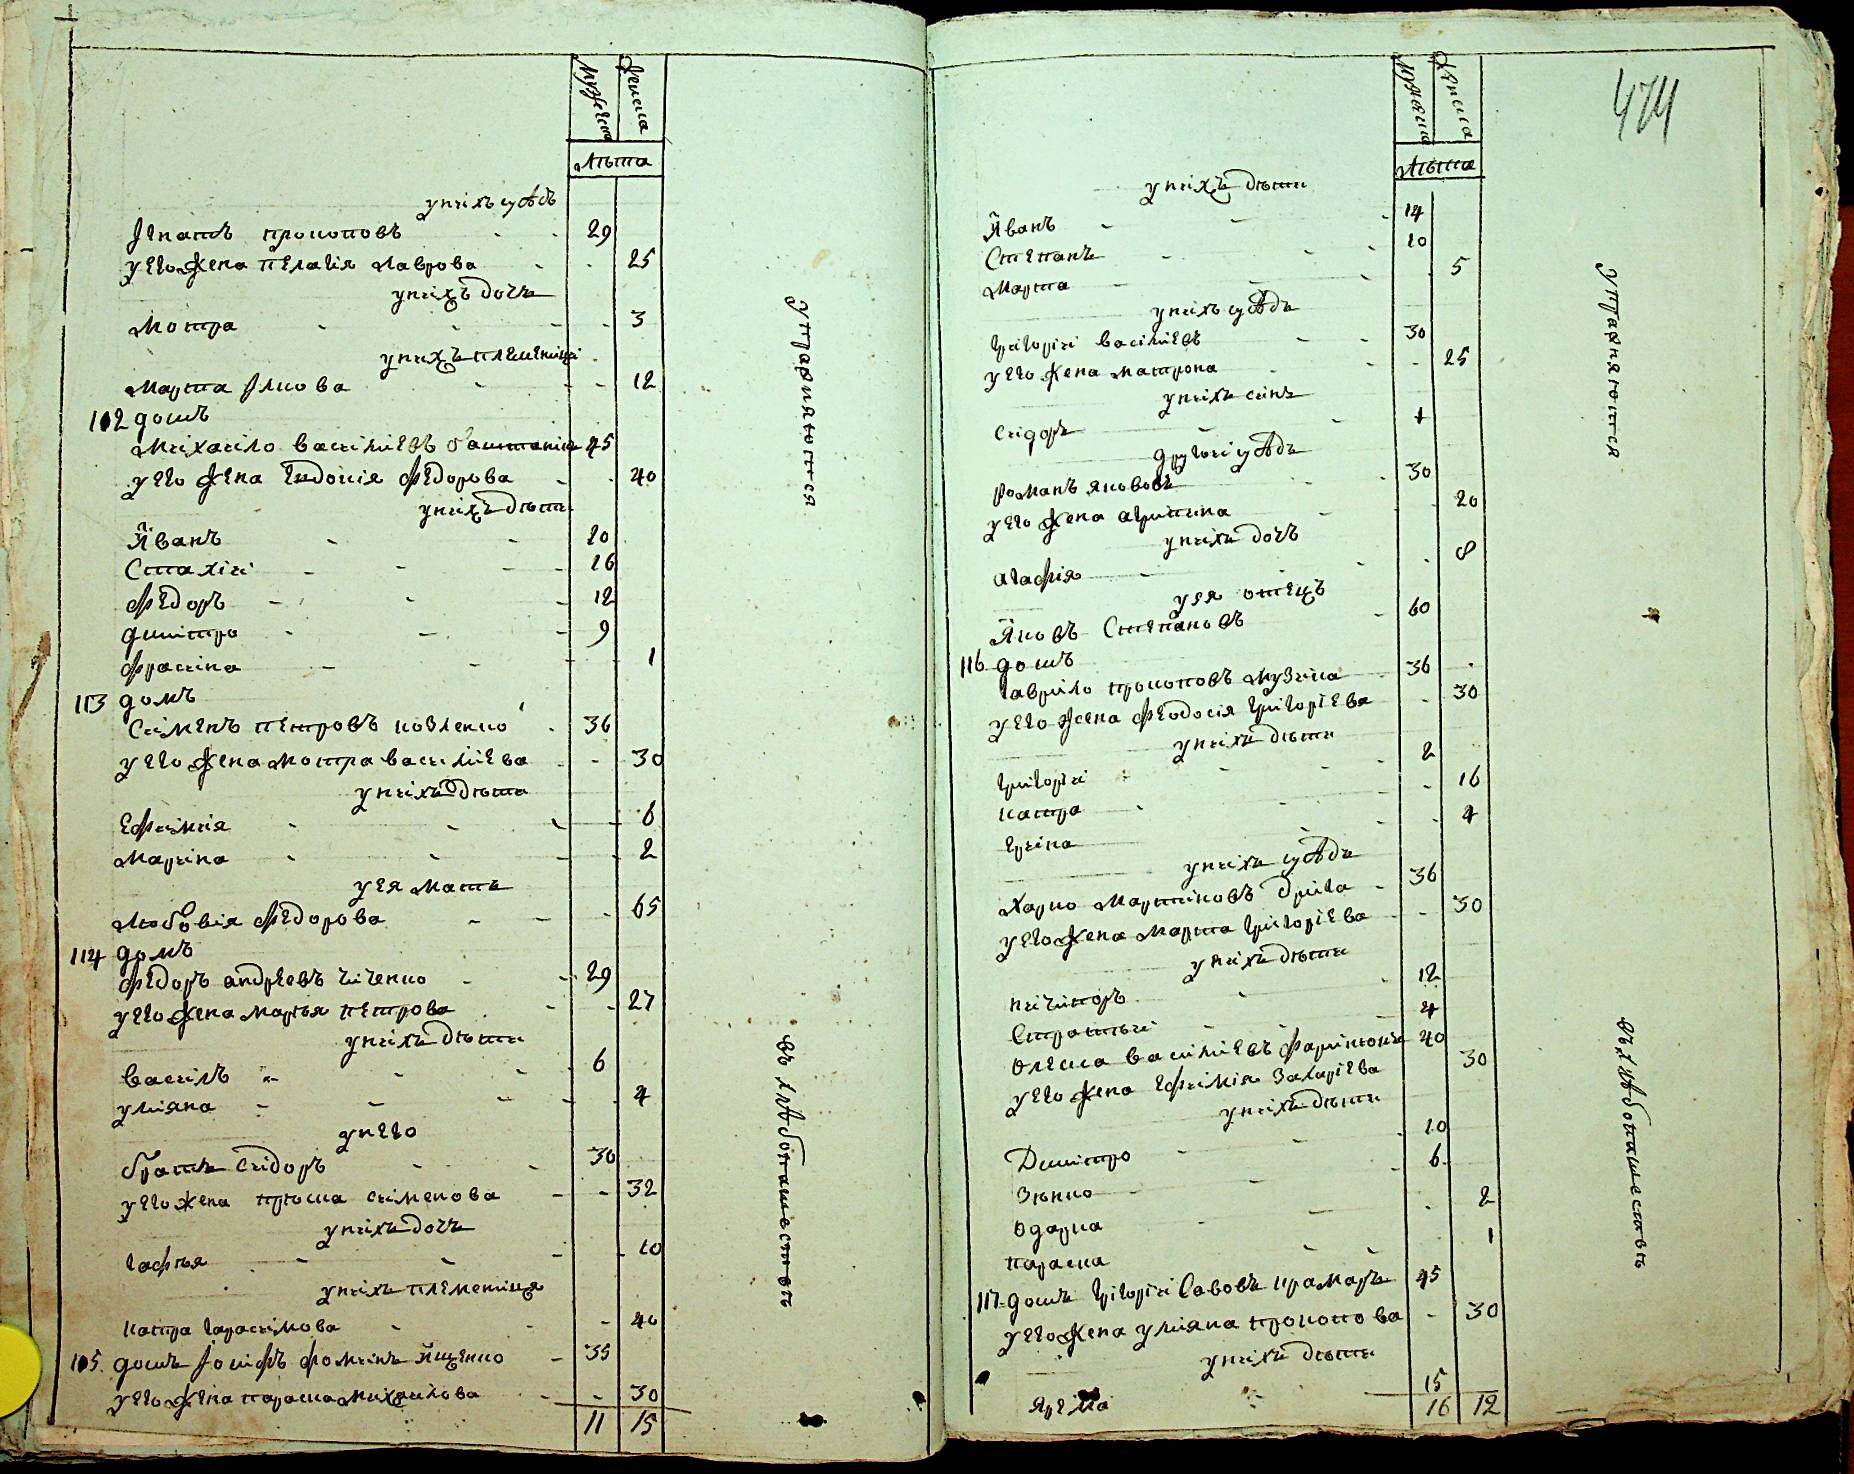 мужеска
женска
лѣта
у них сусѣдъ
Игнатъ прокоповъ - - 29
у его жена пелагія лаврова - - 25
у нихъ дочь
мотря - - - 3
у нихъ племеница
марта Якова - - - 12
112 домъ
михаило василиевъ баштаник 45
у его жена Евдокія федорова - - 40
у нихъ дѣти
Иванъ - - 20
Стахій - - - 16
федоръ - - - 12
димитро - - - 9
фросина - - - 1
113 домъ
Сименъ петровъ козленко - 36
у его жена мотра василиева - 30
у нихъ дѣти
Ефимия - - - 6
марина - - - 2
у ея мать
любовія федорова - - - 65
114 домъ
федоръ андреевъ - - 29
у его жена марья петрова - - 27
у нихъ дѣти
василъ - - - 6
уляна - - - 4
у него
братъ Сидоръ - - 30
у его жена приска сименова - - 32
у нихъ дочь
гафья - - - 10
у нихъ племеница
катра гарасимова - - - 40
115. домъ Іосифъ фоминъ Ященко - 35
у его жена параска михаилова - - 30
11 15
упражняются
въ хлѣбопашествѣ
474
мужеска
женска
лѣта
у нихъ дѣти
Иванъ - - - 14
Степанъ - - - 10
марта - - - 5
у нихъ сусѣдъ
григорій василіевъ - - 30
у его жена матрона - - 25
у нихъ синъ
Сидоръ - - 1
другій сусѣдъ
романъ якововъ - 30
у его жена агрипина - 20
у нихъ дочъ
агафія - - - 8
у ея отецъ
Яковъ Степановъ - 60
116 домъ
гаврило прокоповъ музика 36
у его жена феодосія григоріева - 30
у нихъ дѣти
григорій - - - 2
катра - - - 16
Ірина - - 4
у нихъ сусѣдъ
Харко мартиновъ дрига - 36
у его жена марта григоріева - 30
у нихъ дѣти
ничипоръ - - 12
Стратій - - 4
олекса василиевъ 40
у его жена Ефимія Захаріева 30
у нихъ дѣти
Димитро - - 10
Зѣнко - - 6
одарка - - - 2
параска - - 1
117 домъ григорій Савовъ крамаръ 45
у его жена уляна прокопова - 30
у нихъ дѣти
ярема - 15
16 12
упражняются
въ хлѣбопашествѣ